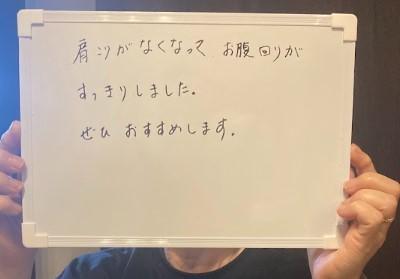 肩こりがなくなって お腹回りが
すっきりしました。
ぜひ おすすめします。